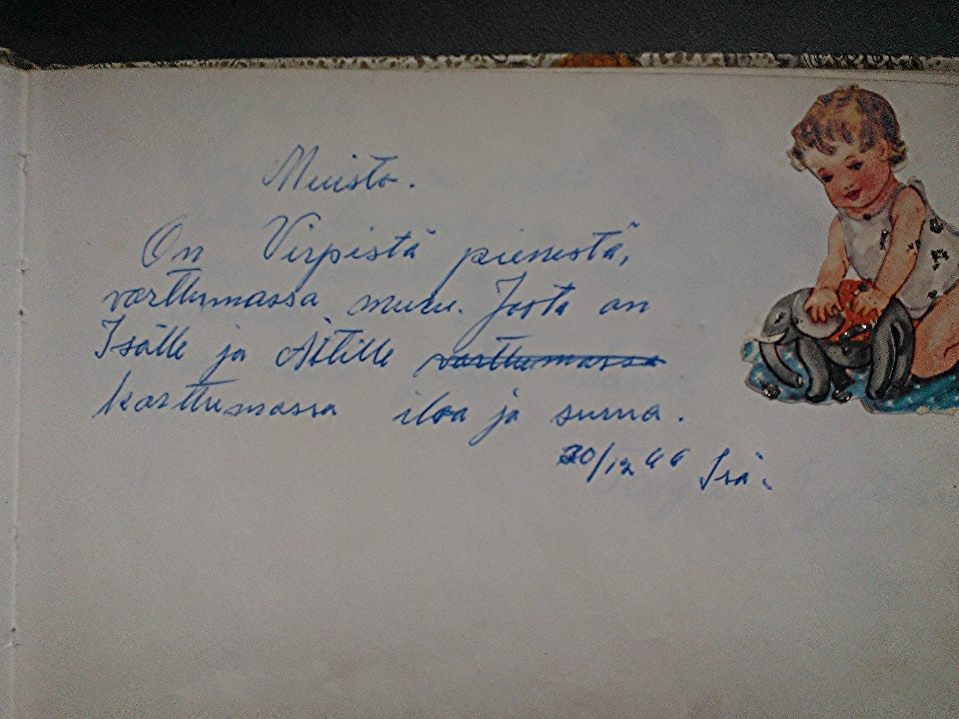 Muisto.
On Virpistä pienestä,
varttumassa muru. Josta on
Isälle ja Äitille varttumassa
karttumassa iloa ja surua.
30/12 66 Isä.